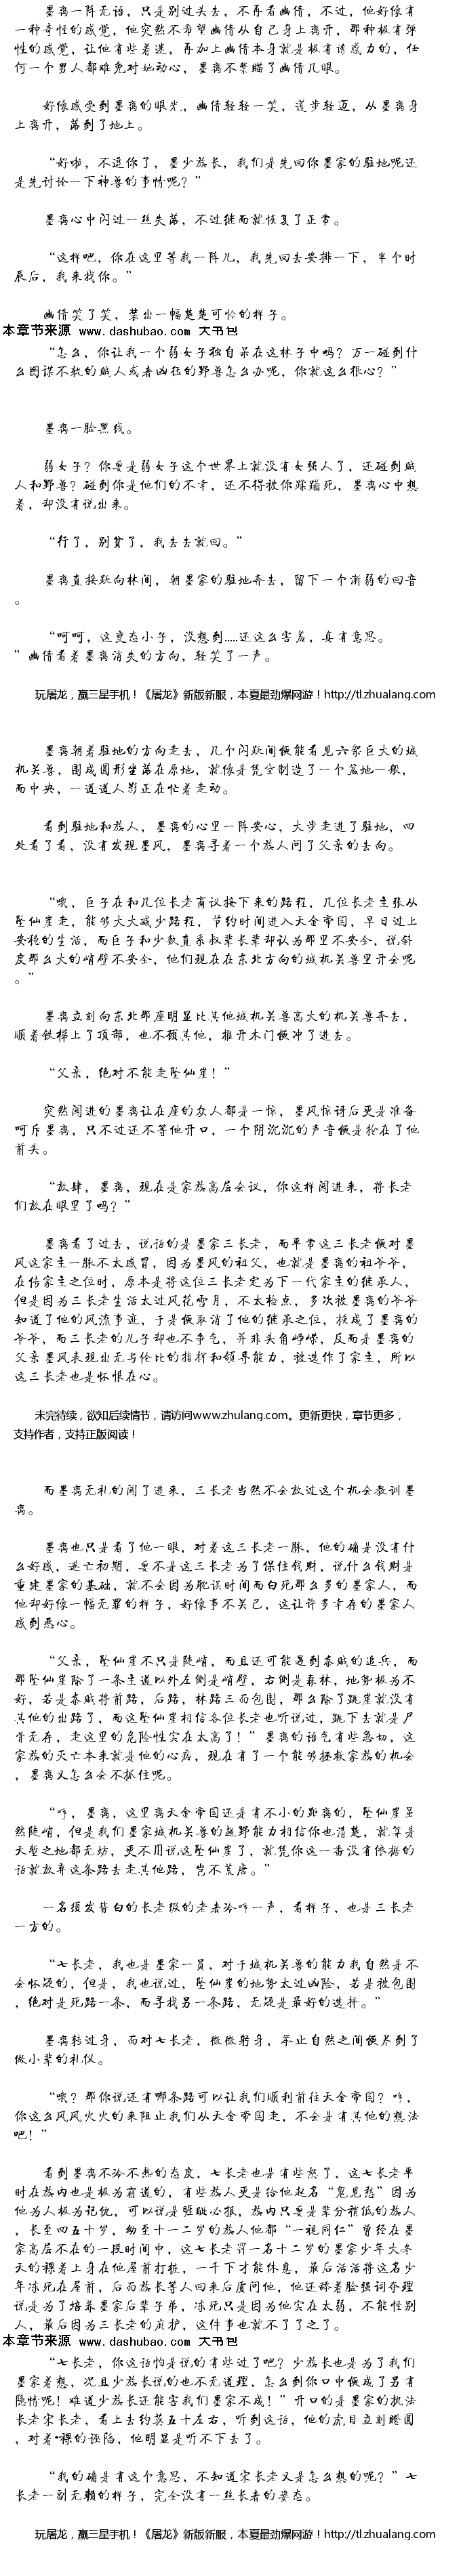 墨离一阵无语，只是别过头去，不再看幽倩，不过，他好像有
一种奇怪的感觉，他突然不希望幽倩从自己身上离开，那种极有弹
性的感觉，让他有些着迷，再加上幽倩本身就是极有诱惑力的，任
何一个男人都难免对她动心，墨离不禁瞄了幽倩几眼。
好像感受到墨离的眼光，幽倩轻轻一笑，莲步轻迈，从墨离身
上离开，落到了地上。
“好啦，不逗你了，墨少族长，我们是先回你墨家的驻地呢还
是先讨论一下神兽的事情呢？”
墨离心中闪过一丝失落，不过继而就恢复了正常。
“这样吧，你在这里等我一阵儿，我先回去安排一下，半个时
辰后，我来找你。”
幽倩笑了笑，装出一幅楚楚可怜的样子。
本章节来源 www.dashubao.com 大书包
“怎么，你让我一个弱女子独自呆在这林子中吗？万一碰到什
么图谋不轨的贼人或者凶狂的野兽怎么办呢，你就这么狠心？”
墨离一脸黑线。
弱女子？你要是弱女子这个世界上就没有女强人了，还碰到贼
人和野兽？碰到你是他们的不幸，还不得被你蹂躏死，墨离心中想
着，却没有说出来。
“行了，别贫了，我去去就回。”
墨离直接跃向林间，朝墨家的驻地奔去，留下一个渐弱的回音
。
“呵呵，这变态小子，没想到.....还这么害羞，真有意思。
”幽倩看着墨离消失的方向，轻笑了一声。
玩屠龙，赢三星手机！《屠龙》新版新服，本夏最劲爆网游！http://tl.zhualang.com
墨离朝着驻地的方向走去，几个闪跃间便能看见六架巨大的城
机关兽，围成圆形坐落在原地，就像是凭空制造了一个盆地一般，
而中央，一道道人影正在忙着走动。
看到驻地和族人，墨离的心里一阵安心，大步走进了驻地，四
处看了看，没有发现墨风，墨离寻着一个族人问了父亲的去向。
“哦，巨子在和几位长老商议接下来的路程，几位长老主张从
坠仙崖走，能够大大减少路程，节约时间进入天金帝国，早日过上
安稳的生活，而巨子和少数直系叔辈长辈却认为那里不安全，说斜
度那么大的峭壁不安全，他们现在在东北方向的城机关兽里开会呢
。”
墨离立刻向东北那座明显比其他城机关兽高大的机关兽奔去，
顺着铁梯上了顶部，也不顾其他，推开木门便冲了进去。
“父亲，绝对不能走坠仙崖！”
突然闯进的墨离让在座的众人都是一惊，墨风惊讶后更是准备
呵斥墨离，只不过还不等他开口，一个阴沉沉的声音便是抢在了他
前头。
“放肆，墨离，现在是家族高层会议，你这样闯进来，将长老
们放在眼里了吗？”
墨离看了过去，说话的是墨家三长老，而平常这三长老便对墨
风这家主一脉不太感冒，因为墨风的祖父，也就是墨离的祖爷爷，
在传家主之位时，原本是将这位三长老定为下一代家主的继承人，
但是因为三长老生活太过风花雪月，不太检点，多次被墨离的爷爷
知道了他的风流事迹，于是便取消了他的继承之位，换成了墨离的
爷爷，而三长老的儿子却也不争气，并非头角峥嵘，反而是墨离的
父亲墨风表现出无与伦比的指挥和领导能力，被选作了家主，所以
这三长老也是怀恨在心。
未完待续，欲知后续情节，请访问www.zhulang.com。更新更快，章节更多，
支持作者，支持正版阅读！
而墨离无礼的闯了进来，三长老当然不会放过这个机会教训墨
离。
墨离也只是看了他一眼，对着这三长老一脉，他的确是没有什
么好感，逃亡初期，要不是这三长老为了保住钱财，说什么钱财是
重建墨家的基础，就不会因为耽误时间而白死那么多的墨家人，而
他却好像一幅无罪的样子，好像事不关己，这让许多幸存的墨家人
感到恶心。
“父亲，坠仙崖不只是陡峭，而且还可能遇到秦贼的追兵，而
那坠仙崖除了一条主道以外左侧是峭壁，右侧是森林，地势极为不
好，若是秦贼将前路，后路，林路三面包围，那么除了跳崖就没有
其他的出路了，而这坠仙崖相信各位长老也听说过，跳下去就是尸
骨无存，走这里的危险性实在太高了！”墨离的语气有些急切，这
家族的灭亡本来就是他的心病，现在有了一个能够拯救家族的机会
，墨离又怎么会不抓住呢。
“哼，墨离，这里离天金帝国还是有不小的距离的，坠仙崖虽
然陡峭，但是我们墨家城机关兽的越野能力相信你也清楚，就算是
天堑之地都无妨，更不用说这坠仙崖了，就凭你这一番没有依据的
话就放弃这条路去走其他路，岂不荒唐。”
一名须发皆白的长老级的老者冷哼一声，看样子，也是三长老
一方的。
“七长老，我也是墨家一员，对于城机关兽的能力我自然是不
会怀疑的，但是，我也说过，坠仙崖的地势太过凶险，若是被包围
，绝对是死路一条，而寻找另一条路，无疑是最好的选择。”
墨离转过身，面对七长老，微微躬身，举止自然之间便尽到了
做小辈的礼仪。
“哦？那你说还有哪条路可以让我们顺利前往天金帝国？哼，
你这么风风火火的来阻止我们从天金帝国走，不会是有其他的想法
吧！”
看到墨离不冷不热的态度，七长老也是有些怒了，这七长老平
时在族内也是极为霸道的，有些族人更是给他起名“鬼见愁”因为
他为人极为记仇，可以说是睚眦必报，族内只要是辈分稍低的族人
，长至四五十岁，幼至十一二岁的族人他都“一视同仁”曾经在墨
家高层不在的一段时间中，这七长老罚一名十二岁的墨家少年大冬
天的裸着上身在他屋前打桩，一千下才能休息，最后活活将这名少
年冻死在屋前，后而族长等人回来后质问他，他还舔着脸强词夺理
说是为了培养墨家后辈子弟，冻死只是因为他实在太弱，不能怪别
人，最后因为三长老的庇护，这件事也就不了了之了。
本章节来源 www.dashubao.com 大书包
“七长老，你这话怕是说的有些过了吧？少族长也是为了我们
墨家着想，况且少族长说的也不无道理，怎么到你口中便成了另有
隐情呢！难道少族长还能害我们墨家不成！”开口的是墨家的执法
长老宋长老，看上去约莫五十左右，听到这话，他的虎目立刻瞪圆
，对着*裸的诬陷，他明显是听不下去了。
“我的确是有这个意思，不知道宋长老又是怎么想的呢？”七
长老一副无赖的样子，完全没有一丝长者的姿态。
玩屠龙，赢三星手机！《屠龙》新版新服，本夏最劲爆网游！http://tl.zhualang.com